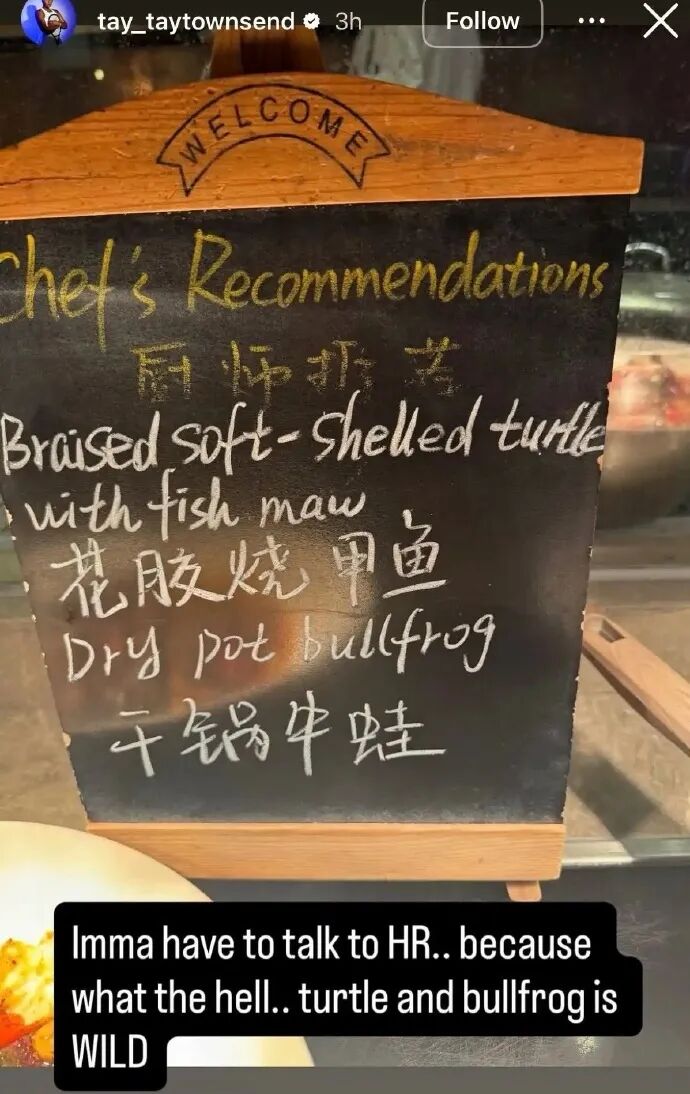 tay_taytownsend 3h Follow
WELCOME
Chef's Recommendations
厨师推荐
Braised soft-shelled turtle
with fish maw
花胶烧甲鱼
Dry pot bullfrog
干锅牛蛙
Imma have to talk to HR.. because
what the hell.. turtle and bullfrog is
WILD